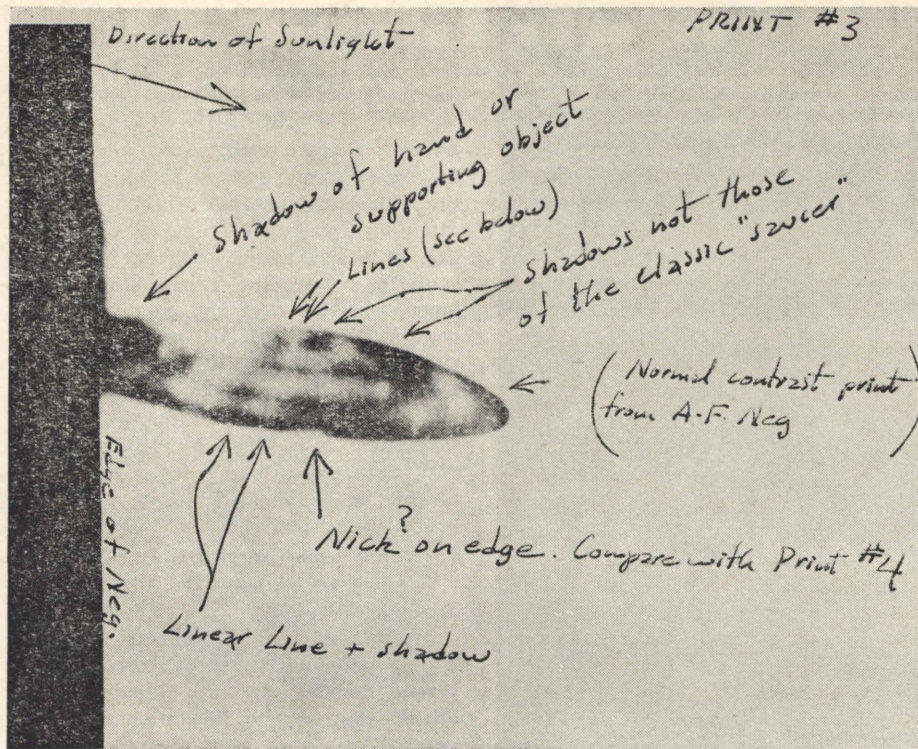 PRINT #3
Direction of Sunlight
Shadow of hand or
supporting object
Lines (see below)
Shadows not those
of the classic "saucer"
(Normal contrast print
from A.F. Neg)
Edge of Neg.
?
Nick on edge. Compare with Print #4
Linear Line + shadow